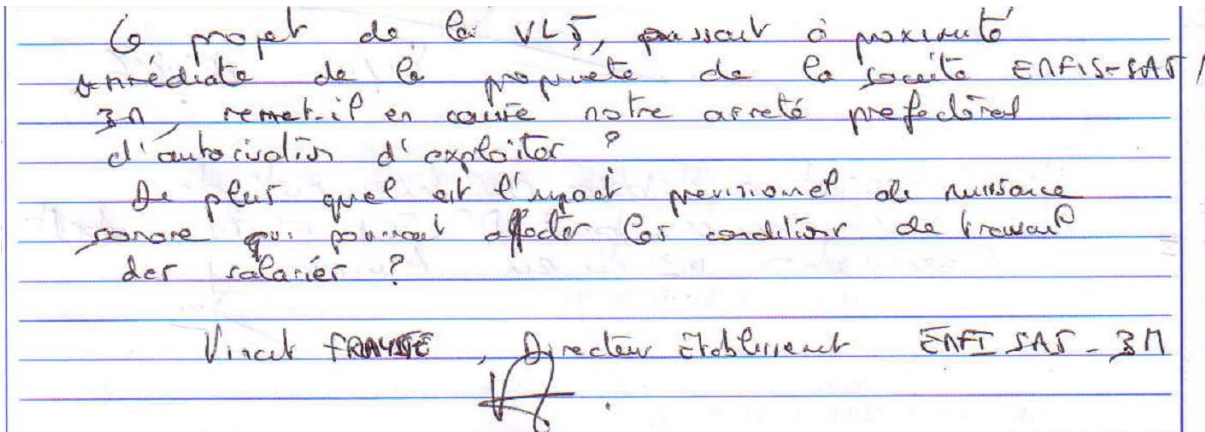 Le projet de la VL5, passant à proximité
immédiate de la propriété de la société ENFIS-SAS /
3M, remet-il en cause notre arreté prefectoral
d'autorisation d'exploiter ?
De plus quel est l'impact previsionnel de nuisance
sonore qui pourrait affecter les conditions de travail
des salariés ?
Vincent FRAYSSE, Directeur Etablissement ENFI SAS - 3M